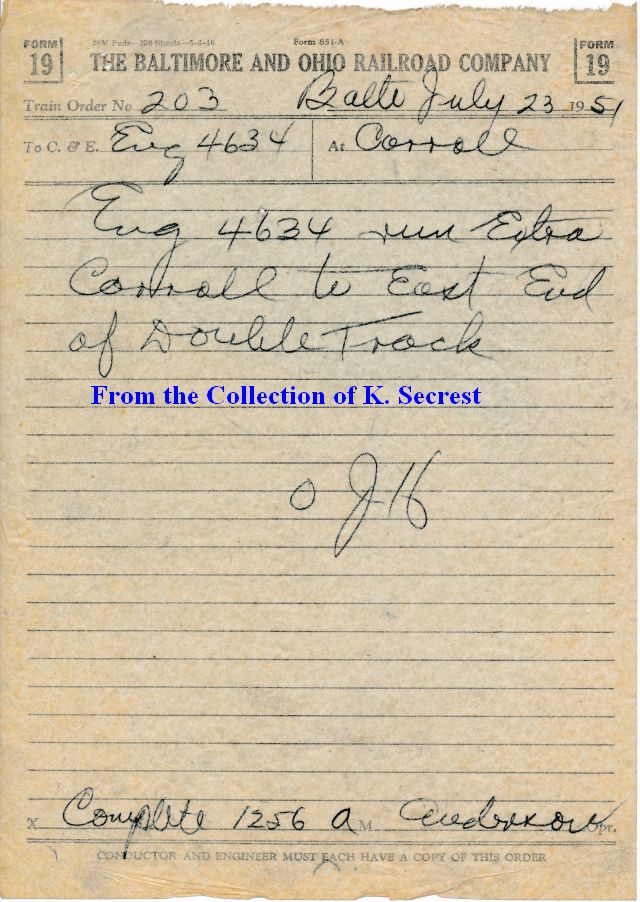 FORM 19
20M Pads—250 Sheets—5-6-46 Form 851-A
FORM 19
THE BALTIMORE AND OHIO RAILROAD COMPANY
Train Order No. 203 Balto July 23 1951
To C. & E. Eng 4634 At Carroll
Eng 4634 run Extra
Carroll to East End
of Double Track
From the Collection of K. Secrest
O J H
X Complete 1256 A M Anderson Opr.
CONDUCTOR AND ENGINEER MUST EACH HAVE A COPY OF THIS ORDER